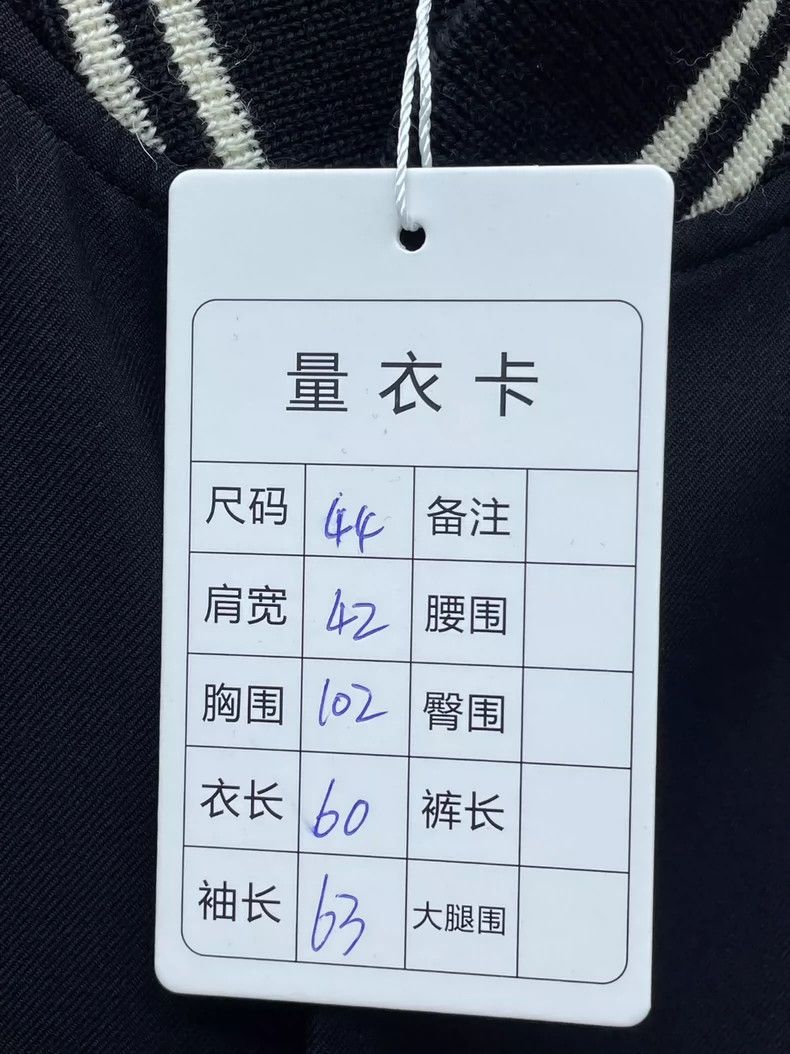 量衣卡
尺码 44 备注
肩宽 42 腰围
胸围 102 臀围
衣长 60 裤长
袖长 63 大腿围